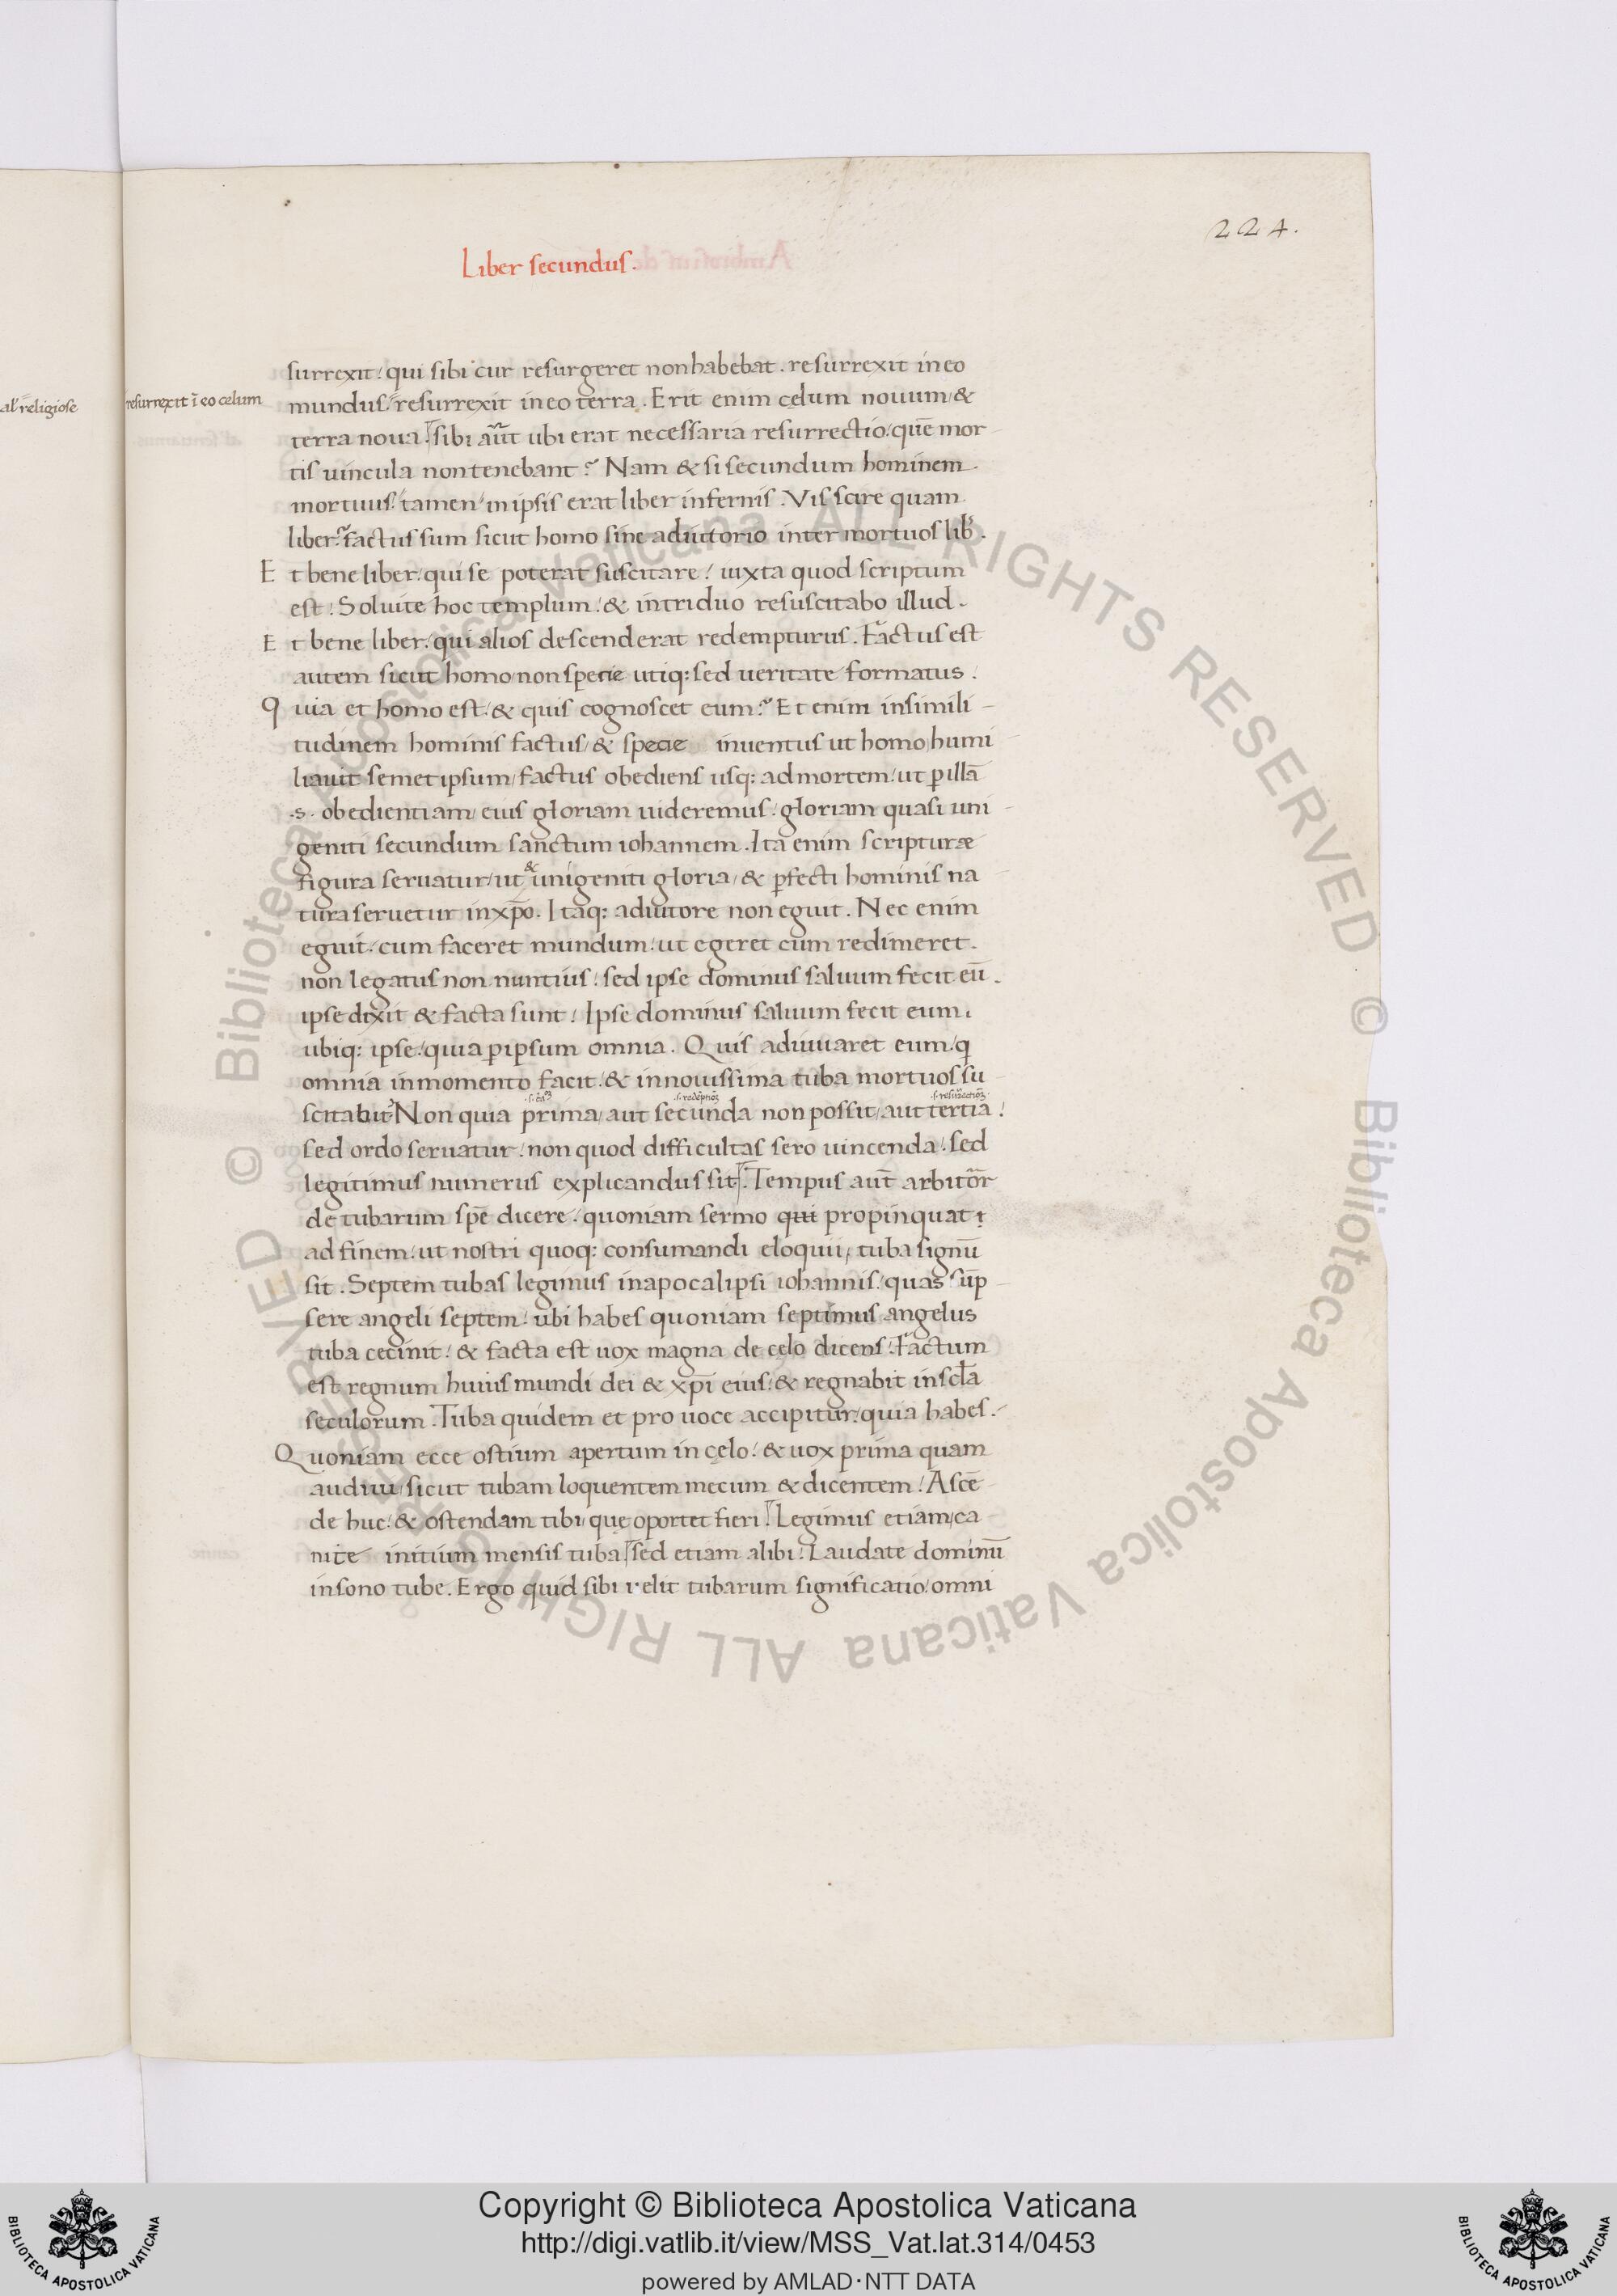 224.
Liber secundus.
al' religiose
resurrexit ī eo celum
surrexit: qui sibi cur resurgeret non habebat. resurrexit in eo
mundus: resurrexit in eo terra. Erit enim cęlum nouum, &
terra noua. sibi aūt ubi erat necessaria resurrectio, quē mor-
tis uincula non tenebant? Nam & si secundum hominem
mortuus, tamen in ipsis erat liber infernis. Vis scire quam
liber? factus sum sicut homo sine adiutorio inter mortuos lib'.
Et bene liber, qui se poterat suscitare, iuxta quod scriptum
est: Soluite hoc templum, & in triduo resuscitabo illud.
Et bene liber, qui alios descenderat redempturus. Factus est
autem sicut homo, non specie utiq: sed ueritate formatus.
Quia et homo est, & quis cognoscet eum? Et enim in simili-
tudinem hominis factus, & specie inuentus ut homo, humi
liauit semet ipsum, factus obediens usq: ad mortem, ut p illā
.s. obedientiam, eius gloriam uideremus, gloriam quasi uni-
geniti secundum sanctum iohannem. Ita enim scripturæ
figura seruatur, ut & unigeniti gloria, & pfecti hominis na
tura seruetur in xp̄o. Itaq: adiutore non eguit. Nec enim
eguit, cum faceret mundum, ut egeret cum redimeret.
non legatus non nuntius, sed ipse dominus saluum fecit eū.
ipse dixit & facta sunt. Ipse dominus saluum fecit eum,
ubiq: ipse, quia p ipsum omnia. Quis adiuuaret eum, q
omnia in momento facit, & in nouissima tuba mortuos su
.s. redēptiōe .s. resurrectiōe
scitabit? Non quia prima, aut secunda non possit, aut tertia,
sed ordo seruatur, non quod difficultas sero uincenda, sed
legitimus numerus explicandus sit. Tempus aūt arbitōr
de tubarum spē dicere, quoniam sermo qui propinquat
ad finem, ut nostri quoq: consumandi eloquii, tuba signū
sit. Septem tubas legimus in apocalipsi iohannis, quas sūp
sere angeli septem, ubi habes quoniam septimus angelus
tuba cecinit, & facta est uox magna de cęlo dicens: Factum
est regnum huius mundi dei & xp̄i eius, & regnabit in scl̄a
seculorum. Tuba quidem et pro uoce accipitur, quia habes.
Quoniam ecce ostium apertum in cęlo, & uox prima quam
audiui, sicut tubam loquentem mecum & dicentem: Ascē
de huc, & ostendam tibi, quę oportet fieri. Legimus etiam, ca
nite initium mensis tuba, sed etiam alibi: Laudate dominū
in sono tube. Ergo quid sibi uelit tubarum significatio, omni
© Biblioteca Apostolica Vaticana ALL RIGHTS RESERVED © Biblioteca Apostolica Vaticana ALL RIGHTS RESERVED
BIBLIOTECA APOSTOLICA VATICANA
Copyright © Biblioteca Apostolica Vaticana
http://digi.vatlib.it/view/MSS_Vat.lat.314/0453
powered by AMLAD·NTT DATA
BIBLIOTECA APOSTOLICA VATICANA